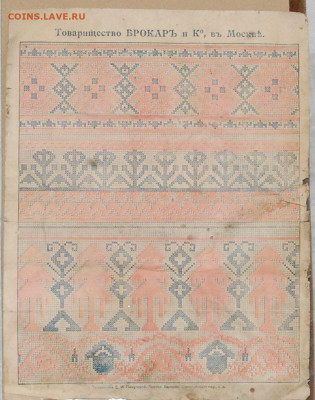 COINS.LAVE.RU
Товарищество БРОКАРЪ и Ко, въ Москвѣ.